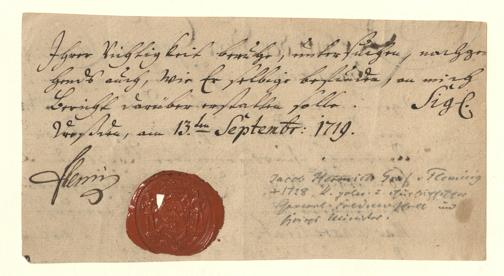 Ihrer Richtigkeit beruhe, untersuchen, nachge
hends auch, wie Er selbige befunden, an mich
Bericht darüber erstatten solle. Sigl.
Dressden, am 13.ten Septembr: 1719.
Flemming
Jacob Heinrich Graf v. Fleming
+ 1728 k. poln. u. kursächsischer
General-Feldmarschall und
Minister.